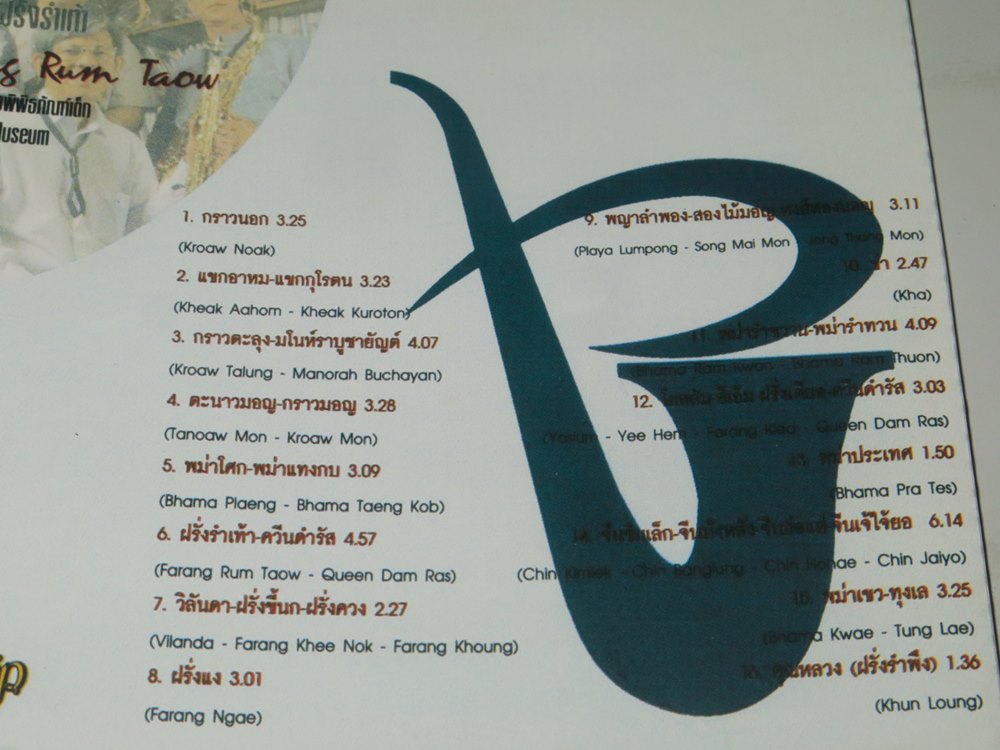 ปรั่งรำเท้า
g Rum Taow
พิพิธภัณฑ์เด็ก
Museum
1. กราวนอก 3.25
(Kroaw Noak)
2. แขกอาหม-แขกกุโรตน 3.23
(Kheak Aahom - Kheak Kuroton)
3. กราวตะลุง-มโนห์ราบูชายัญต์ 4.07
(Kroaw Talung - Manorah Buchayan)
4. ตะนาวมอญ-กราวมอญ 3.28
(Tanoaw Mon - Kroaw Mon)
5. พม่าโศก-พม่าแทงกบ 3.09
(Bhama Plaeng - Bhama Taeng Kob)
6. ฝรั่งรำเท้า-ควีนดำรัส 4.57
(Farang Rum Taow - Queen Dam Ras)
7. วิลันดา-ฝรั่งขี้นก-ฝรั่งควง 2.27
(Vilanda - Farang Khee Nok - Farang Khoung)
8. ฝรั่งแง 3.01
(Farang Ngae)
9. พญาลำพอง-สองไม้มอญ-หงส์ทองมอญ 3.11
(Playa Lumpong - Song Mai Mon - Jong Thong Mon)
10. ข่า 2.47
(Kha)
11. พม่ารำขวาน-พม่ารำทวน 4.09
(Bhama Ram Kwan - Bhama Ram Thuon)
12. ฝรั่งเดียด-ควีนดำรัส 3.03
(Yosium - Yee Hem - Farang Kied - Queen Dam Ras)
13. พม่าประเทศ 1.50
(Bhama Pra Tes)
14. จีนขิมเล็ก-จีนเจ้ไจ๋ยอ 6.14
(Chin Kimlek - Chin Banglung - Chin Hohae - Chin Jaiyo)
15. พม่าเขว-ทุงเล 3.25
(Bhama Kwae - Tung Lae)
16. คุณหลวง (ฝรั่งรำพึง) 1.36
(Khun Loung)
ip